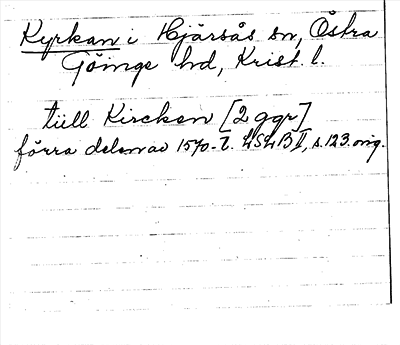 Kyrkan i Hjärsås sn, Östra
Göinge hd, Krist. l.
tüll Kircken [2 ggr]
förra delen av 1570-t. LSLB II, s. 123. orig.